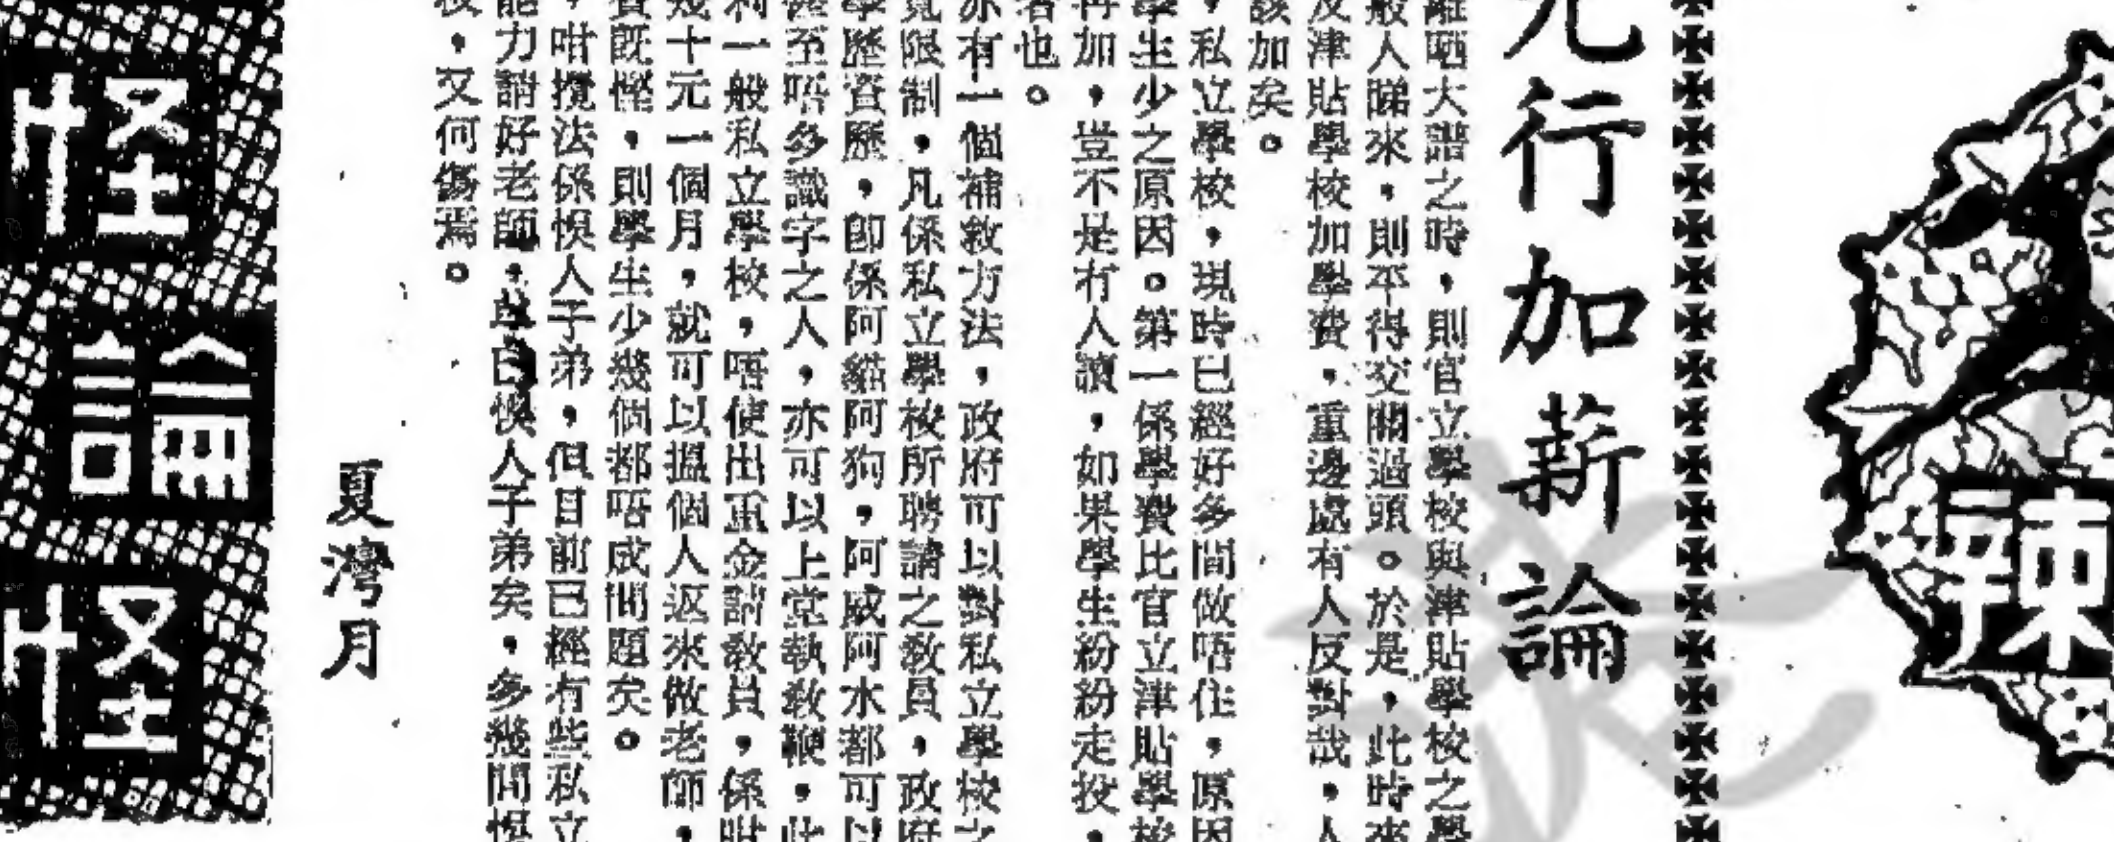 辣
元行加薪論
離晒大譜之時，則官立學校與津貼學校之學
般人睇來，則平得交關過頭。於是，此時來
及津貼學校加學費，重邊處有人反對哉，人
該加矣。
，私立學校，現時已經好多間做唔住，原因
學生少之原因。第一係學費比官立津貼學校
再加，豈不是冇人讀，如果學生紛紛走投，
者也。
亦有一個補救方法，政府可以對私立學校之
寬限制，凡係私立學校所聘請之教員，政府
學歷資歷，卽係阿貓阿狗，阿威阿水都可以
至唔多識字之人，亦可以上堂執教鞭，此
利一般私立學校，唔使出重金請教員，係咁
幾十元一個月，就可以搵個人返來做老師，
資旣慳，則學生少幾個都唔成問題矣。
，咁攪法係悞人子弟，但目前已經有些私立
能力請好老師，早已悞人子弟矣，多幾間悞
校，又何傷焉。
夏灣月
怪論怪